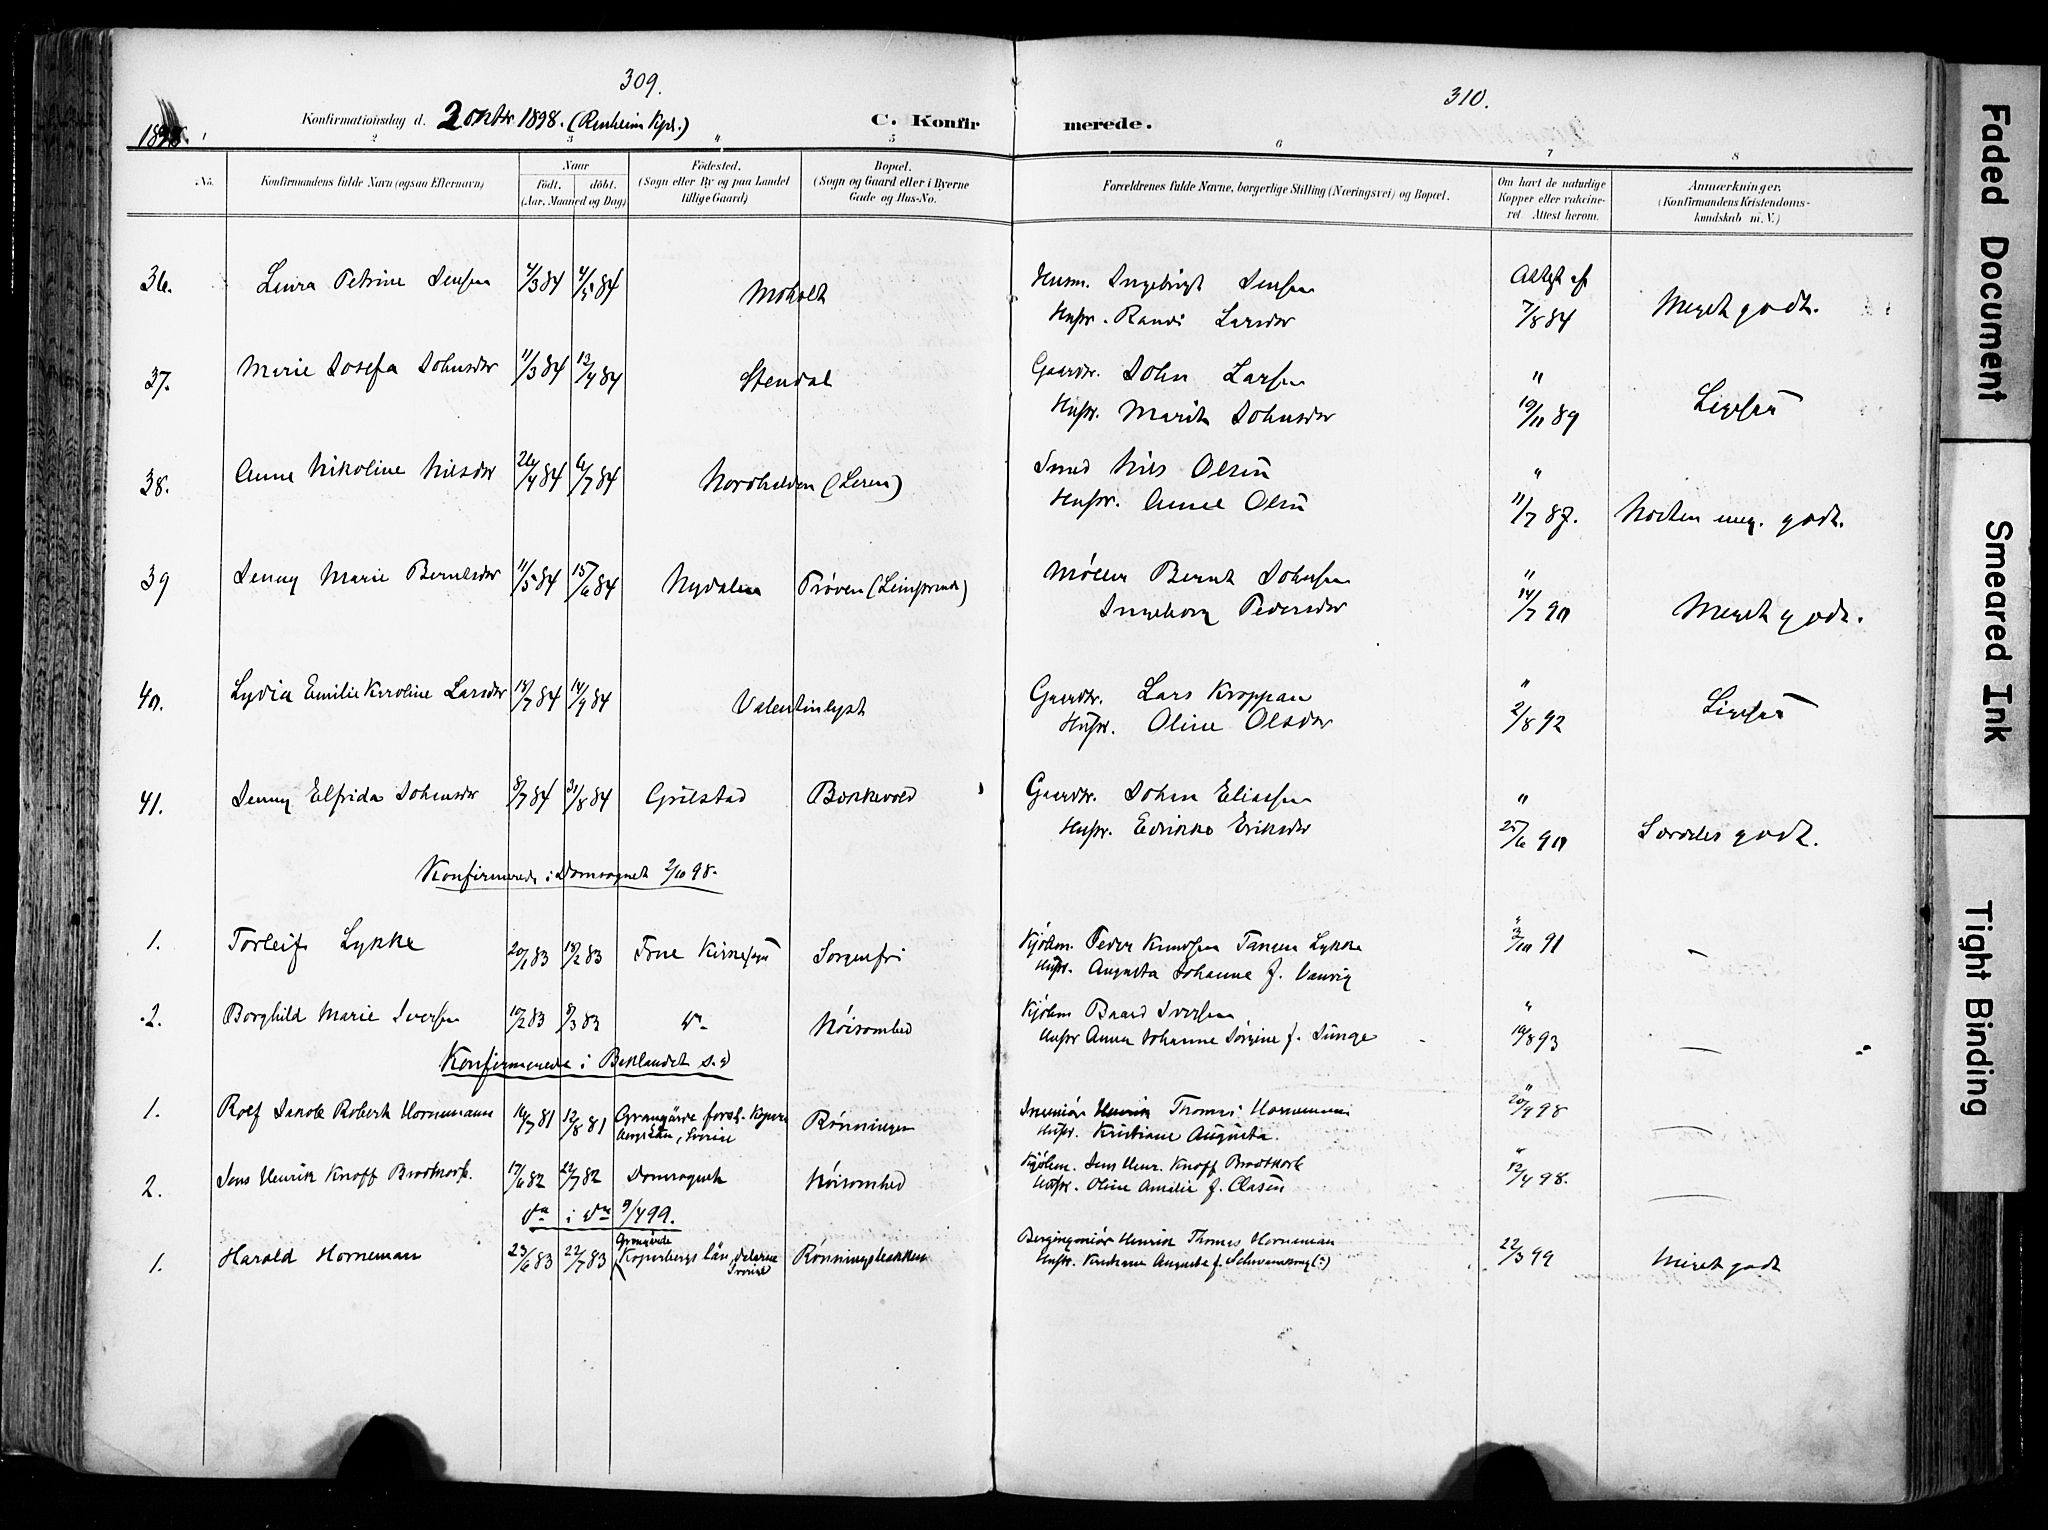 309.
310.
1898.
Konfirmationsdag d. 2 oktbr. 1898. (Renheim Kpl.)
C. Konfirmerede.
2 3 4 5 6 7 8
No.
Konfirmandens fulde Navn (ogsaa Efternavn)
Naar
født. døbt.
(Aar, Maaned og Dag)
Fødested.
(Sogn eller By og paa Landet
tillige Gaard)
Bopæl.
(Sogn og Gaard eller i Byerne
Gade og Hus-No.
Forældrenes fulde Navne, borgerlige Stilling (Næringsvei) og Bopæl.
Om havt de naturlige
Kopper eller vakcine-
ret. Attest herom.
Anmærkninger.
(Konfirmandens Kristendoms-
kundskab m. V.)
36. Laura Petrine Jensen 4/3 84 4/5 84 Moholt Husm. Ingebrigt Jensen Attest af
Hustr. Randi Larsdtr 7/8 84 Meget godt.
37. Marie Josefa Johnsdtr 11/3 84 13/4 84 Stendal Gaardbr. John Larsen "
Hustr. Marit Johnsdtr 10/11 89 Ligesaa
38. Anne Nikoline Nilsdtr 26/4 84 6/7 84 Nordhalden (Leren) Smed Nils Olsen "
Hustr. Anne Olsd 11/7 87. Næsten meg. godt.
39 Jenny Marie Berntsdtr 11/5 84 15/6 84 Nydalen Prøven (Leinstrand) Møller Bernt Johnsen "
Ingeborg Pedersdtr 14/7 90 Meget godt.
40. Lydia Emilie Karoline Larsdtr 18/7 84 14/9 84 Valentinlyst Gaardbr. Lars Kroppan "
Hustr. Oline Olsdtr 2/8 92 Ligesaa
41. Jenny Elfrida Johnsdtr 8/7 84 31/8 84 Grilstad Bakkevold Gaardbr. Johan Eliassen "
Hustr. Edrikke Eriksdtr 25/6 90 Særdeles godt.
Konfirmerede i Domsognet 2/10 98.
1. Torleif Lykke 20/1 83 18/2 83 Frue Kirkesogn Sorgenfri Kjøbm. Peder Knudsen Tansen Lykke "
Hustr. Augusta Johanne f. Vannig 3/10 91 -
2. Borghild Marie Iversen 10/2 83 8/3 83 do Nøisomhed Kjøbm Baard Iversen "
Hustr Anna Johanne Jørgine f. Junge 19/8 93 -
Konfirmerede i Baklandet s. d
1. Rolf Jakob Robert Hornemann 16/7 81 12/8 81 Grangärde forsl. Kopar- Rønningen Ingeniør Henrik Thomas Hornemann "
bergs Län, Sverige Hustr. Kristiane Augusta. 20/4 98 -
2. Jens Henrik Knoff Brodtkorb. 17/6 82 22/7 82 Domsognet Nøisomhed Kjøbm. Jens Henr. Knoff Brodtkorb "
Hustr. Oline Amalie f. Clasen 12/4 98. -
do i do 9/4 99.
1. Harald Horneman 23/6 83 22/7 83 Grangärde Rønningsbakken Bergingeniør Henrik Thomas Horneman 22/3 99 Meget godt
Koparbergs Län, Dalarne
Sverige Hustr. Kristiane Augusta f. Schwenzong (?)
Faded Document
Smeared Ink
Tight Binding